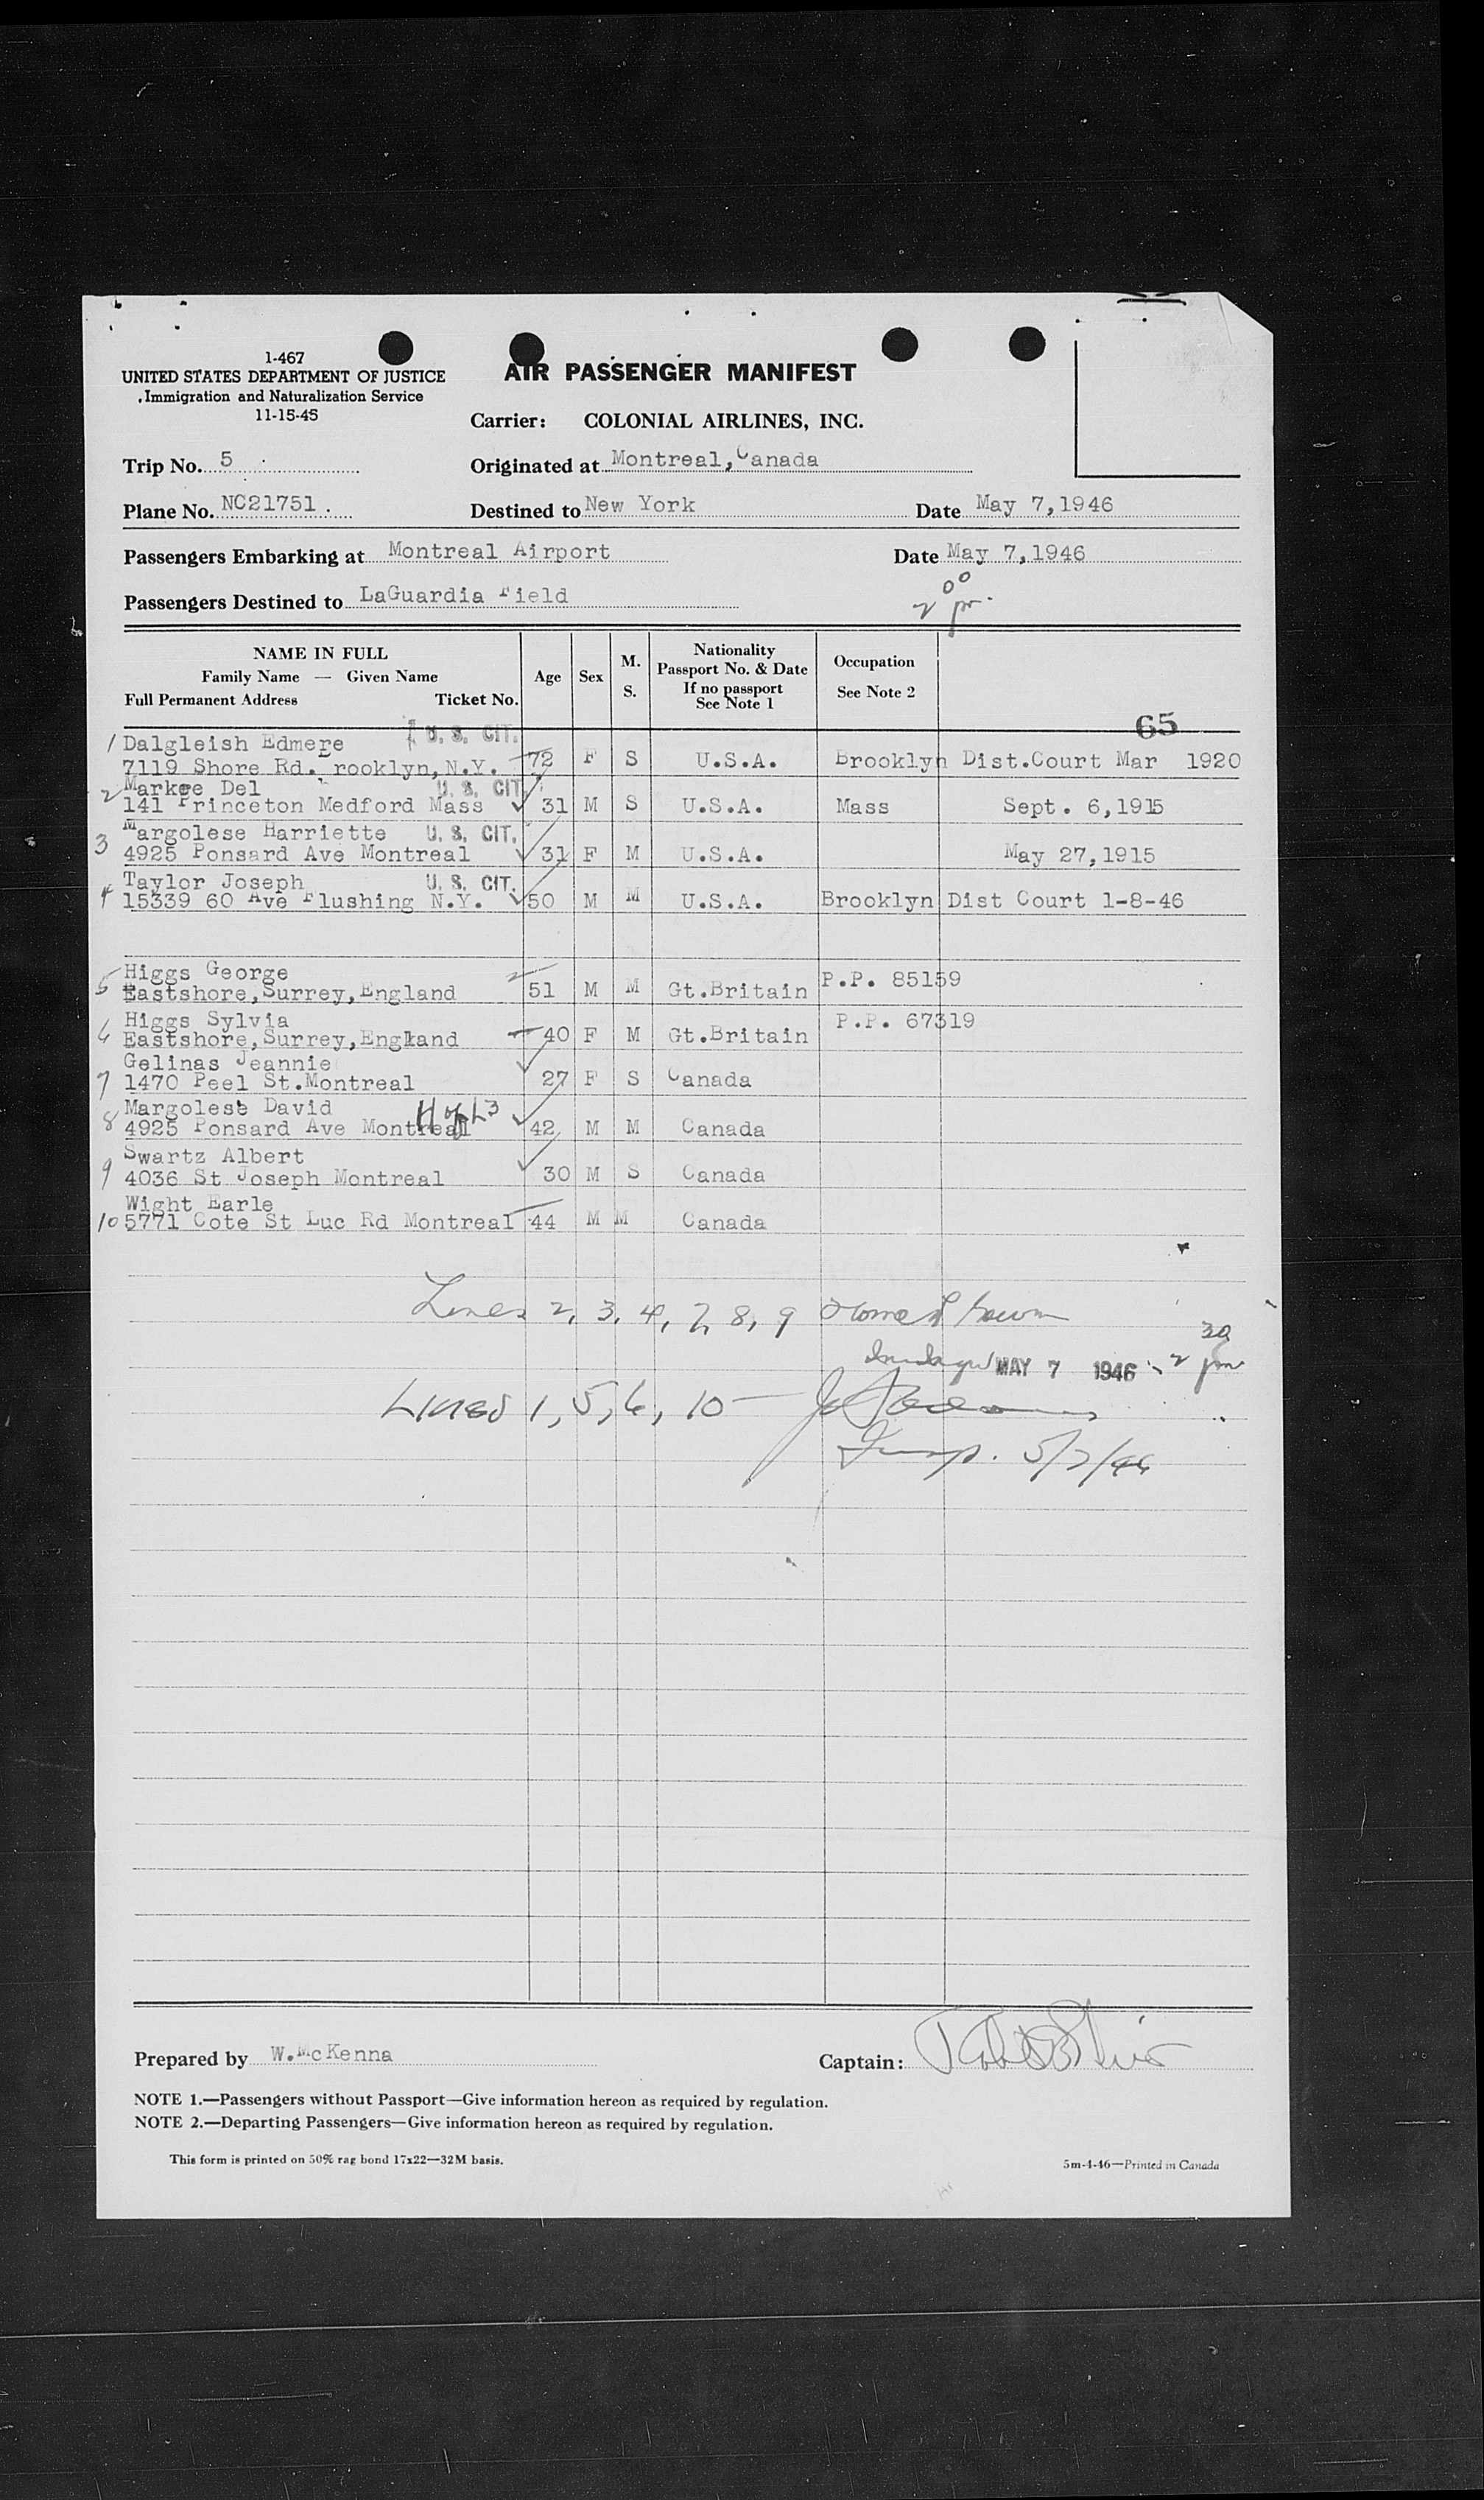 1-467
UNITED STATES DEPARTMENT OF JUSTICE
Immigration and Naturalization Service
11-15-45
AIR PASSENGER MANIFEST
Carrier: COLONIAL AIRLINES, INC.
Trip No. 5 Originated at Montreal, Canada
Plane No. NC21751. Destined to New York Date May 7,1946
Passengers Embarking at Montreal Airport Date May 7,1946
Passengers Destined to LaGuardia Field 2 00 pm.
NAME IN FULL
Family Name — Given Name
Full Permanent Address Ticket No.
Age Sex M. S.
Nationality
Passport No. & Date
If no passport
See Note 1
Occupation
See Note 2
65
1 Dalgleish Edmere U. S. CIT.
7119 Shore Rd. Brooklyn, N.Y. 72 F S U.S.A. Brooklyn Dist.Court Mar 1920
2 Markee Del U. S. CIT.
141 Princeton Medford Mass 31 M S U.S.A. Mass Sept. 6,1915
3 Margolese Harriette U. S. CIT.
4925 Ponsard Ave Montreal 31 F M U.S.A. May 27,1915
4 Taylor Joseph U. S. CIT.
15339 60 Ave Flushing N.Y. 50 M M U.S.A. Brooklyn Dist Court 1-8-46
5 Higgs George
Eastshore,Surrey,England 51 M M Gt.Britain P.P. 85159
6 Higgs Sylvia
Eastshore,Surrey,England 40 F M Gt.Britain P.P. 67319
7 Gelinas Jeannie
1470 Peel St.Montreal 27 F S Canada
8 Margolese David H of L3
4925 Ponsard Ave Montreal 42 M M Canada
9 Swartz Albert
4036 St Joseph Montreal 30 M S Canada
10 Wight Earle
5771 Cote St Luc Rd Montreal 44 M M Canada
Lines 2, 3, 4, 7, 8, 9
MAY 7 1946 2 30 pm
Lines 1, 5, 6, 10 —
Insp. 5/7/46
Prepared by W.McKenna Captain:
NOTE 1.—Passengers without Passport—Give information hereon as required by regulation.
NOTE 2.—Departing Passengers—Give information hereon as required by regulation.
This form is printed on 50% rag bond 17x22—32M basis. 5m-4-46—Printed in Canada